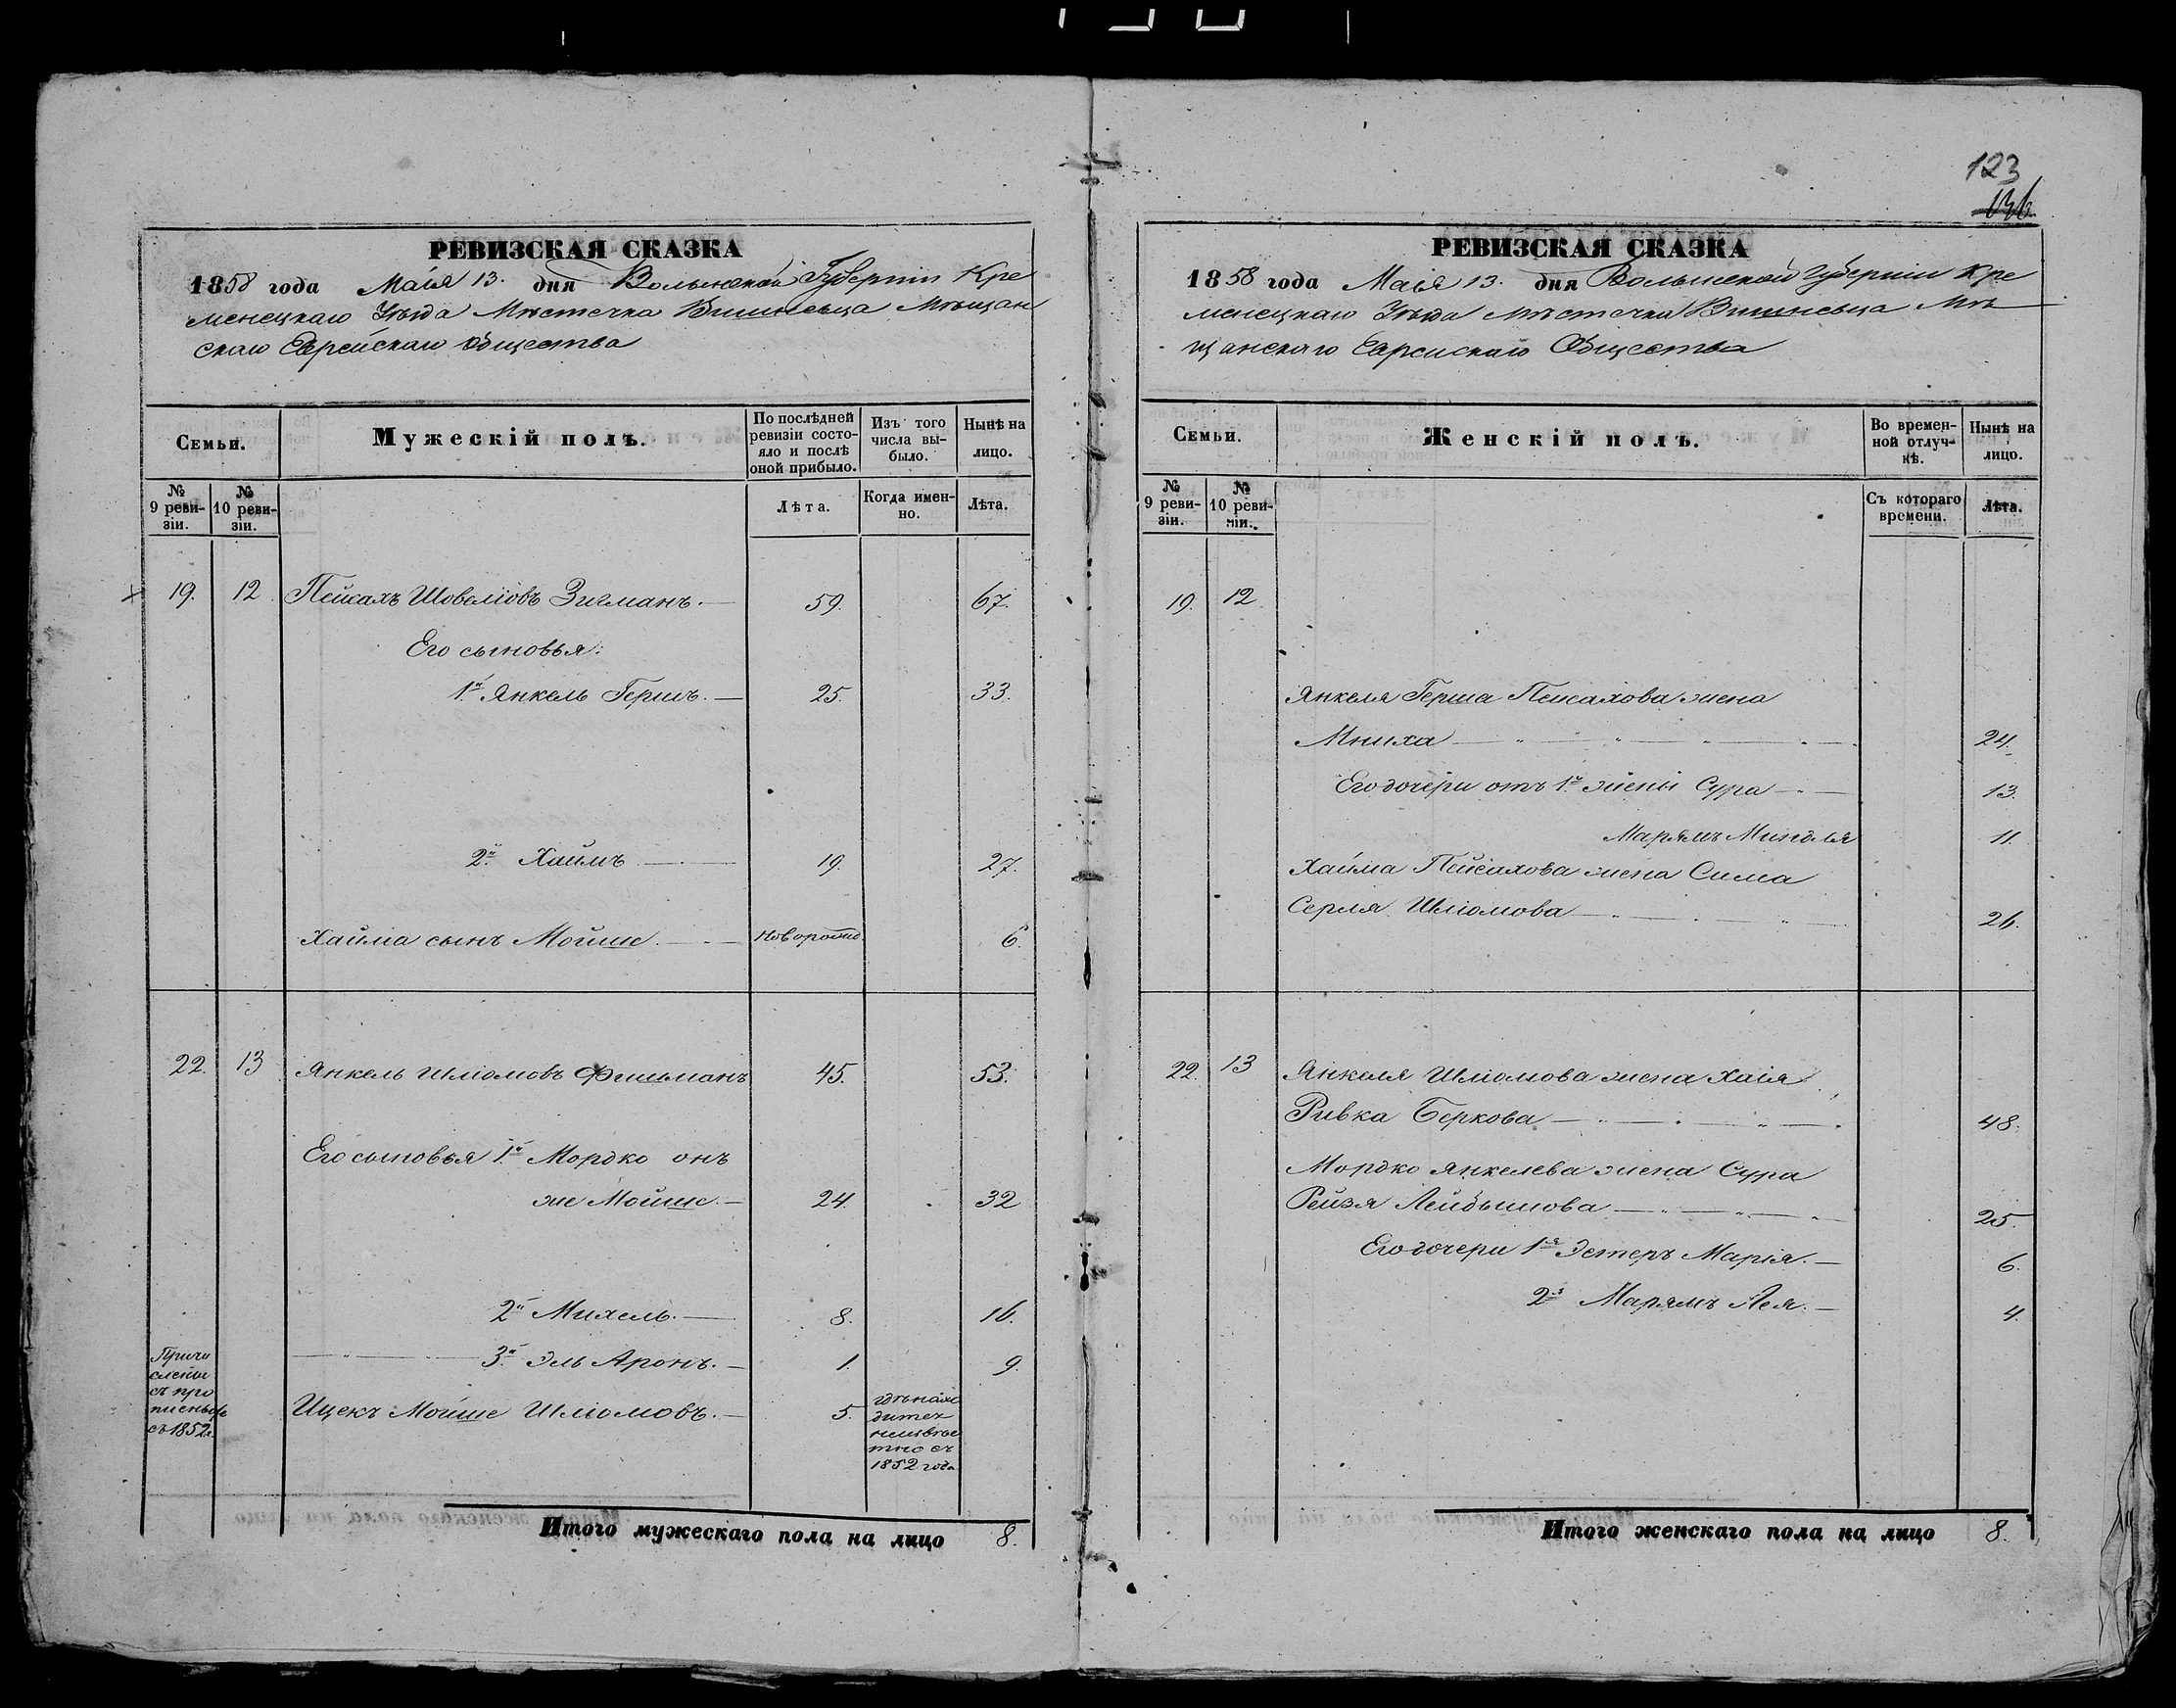 123
136.
РЕВИЗСКАЯ СКАЗКА
1858 года Маія 13. дня Волынской Губерніи Кре
менецкаго Уѣзда Мѣстечка Вишневца Мѣщан
скаго Еврейскаго Общества
Семьи.
Мужескій полъ.
По послѣдней ревизіи состояло и послѣ оной прибыло.
Изъ того числа выбыло.
Нынѣ на лицо.
№ 9 ревизіи.
№ 10 ревизіи.
Лѣта.
Когда именно.
Лѣта.
19. 12. Пейсахъ Шовеліовъ Зигманъ. 59. 67.
Его сыновья:
1й Янкель Гершъ. 25. 33.
2й Хаимъ 19. 27.
Хаима сынъ Мойше. новорожд. 6.
22. 13 Янкель Шліомовъ Фишманъ 45. 53.
Его сыновья 1й Мордко онъ
же Мойше. 24. 32
2й Михель. 8. 16.
3й Эль Аронъ. 1. 9.
Причи
слены
съ про
съ 1852 г.
Ицекъ Мойше Шліомовъ. 5.
гдѣ нахо
дится
неизвѣс
тно съ
1852 года
Итого мужескаго пола на лицо 8.
РЕВИЗСКАЯ СКАЗКА
1858 года Маія 13. дня Волынской Губерніи Кре
менецкаго Уѣзда Мѣстечка Вишневца Мѣ
щанскаго Еврейскаго Общества
Семьи.
Женскій полъ.
Во временной отлучкѣ.
Нынѣ на лицо.
№ 9 ревизіи.
№ 10 ревизіи.
Съ котораго времени.
Лѣта.
19. 12
Янкеля Герша Пейсахова жена
Мниха 24.
Его дочери отъ 1й жены Сура 13.
Марямъ Миндля 11.
Хаима Пейсахова жена Сима
Серля Шліомова 26.
22. 13 Янкеля Шліомова жена Хаія
Ривка Беркова 48.
Мордко Янкелева жена Сура
Рейзя Лейбышова 25.
Его дочери 1я Эстеръ Марія. 6.
2я Марямъ Лея. 4.
Итого женскаго пола на лицо 8.